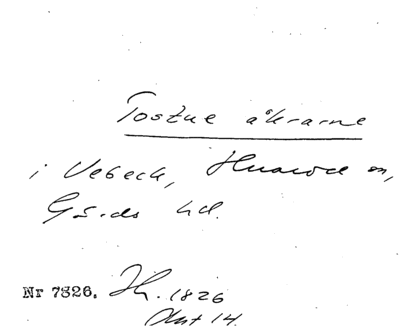 Tostue åkrarne
i Vebeck, Huaröd sn,
Gärds hd.
Nr 7326. Jh. 1826
Akt 14.